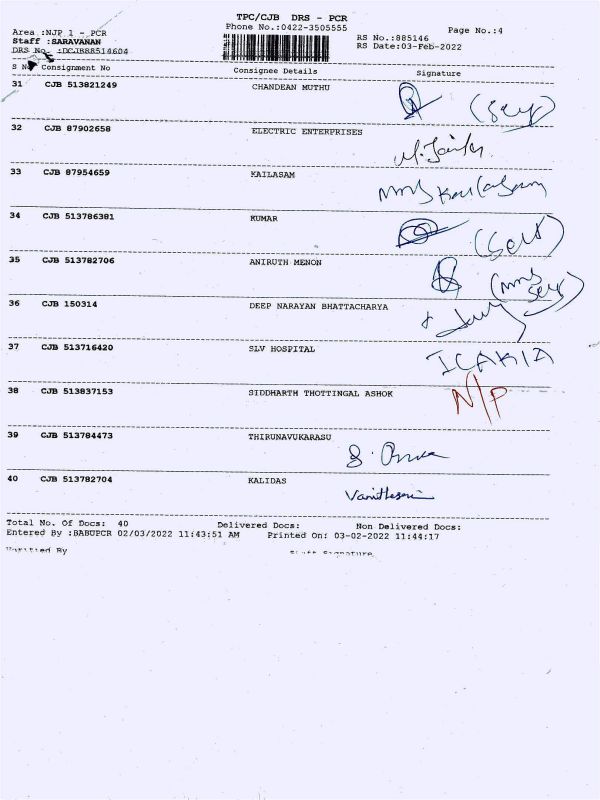 TPC/CJB DRS - PCR
Phone No.:0422-3505555
Page No.:4
Area :NJP 1 - PCR
Staff :SARAVANAN
DRS No. :DCJB88514604
RS No.:885146
RS Date:03-Feb-2022
S No Consignment No Consignee Details Signature
31 CJB 513821249 CHANDEAN MUTHU (Self)
32 CJB 87902658 ELECTRIC ENTERPRISES
33 CJB 87954659 KAILASAM
34 CJB 513786381 KUMAR (Self)
35 CJB 513782706 ANIRUTH MENON
36 CJB 150314 DEEP NARAYAN BHATTACHARYA
37 CJB 513716420 SLV HOSPITAL
38 CJB 513837153 SIDDHARTH THOTTINGAL ASHOK N/P
39 CJB 513784473 THIRUNAVUKARASU
40 CJB 513782704 KALIDAS
Total No. Of Docs: 40 Delivered Docs: Non Delivered Docs:
Entered By :BABUPCR 02/03/2022 11:43:51 AM Printed On: 03-02-2022 11:44:17
Verified By Staff Signature